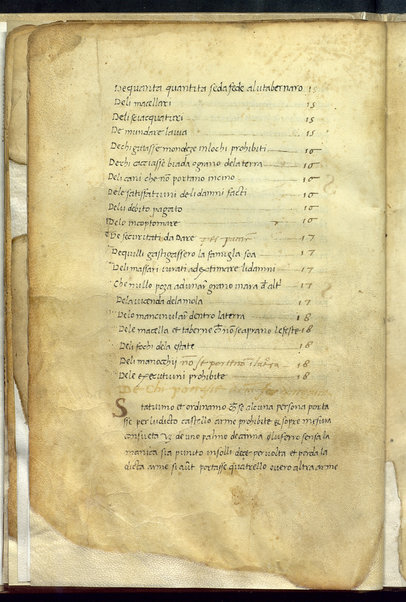 De quanta quantita se da fede alu tabernaro 15
Deli macellari 15
Deli sciacquaturi 15
De mundare la via 15
De chi gictasse mondeze in lochi prohibiti 16
De chi cacciasse biada o grano dela terra 16
Deli cani che nō portano uncino 16
Dele satisfatiuni deli damni facti 16
Delu debito pagato 16
Delo incoptomare 16
De securitati da Dare 17
De quilli gastigassero la famiglia soa 17
Deli massari iurati ad extimare li damni 17
Che nullo poza adunar grano inara d'alt' 17
Dela vicenda dela mola 17
Delo mancinular dentro la terra 18
Dele macella et taberne che nō se aprano le feste 18
Deli fochi dela estate 18
Deli manocchii nō se portino 18
Dele executiuni prohibite 18
De Chi portasse
Statuimo et ordinamo che se alcuna persona porta
sse per lu dicto castello arme prohibite et sopre misura
consueta de uno palmo de canna o lu ferro sensa la
manica sia punito in solli dece per volta et perda la
dicta arme si aūt portasse quatrello overo altra arme